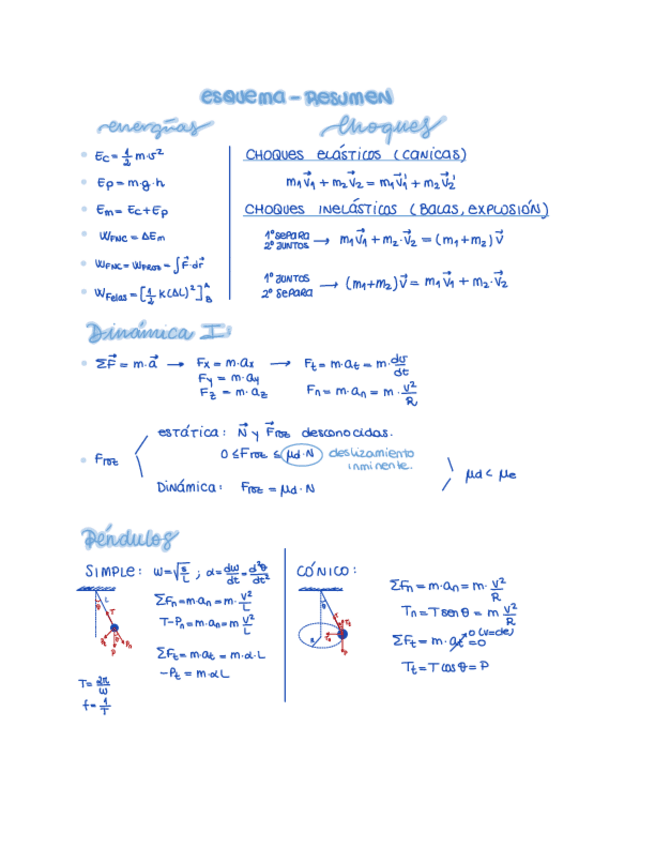 esquema - Resumen
energías
choques
Ec = 1/2 m·v²
Ep = m·g·h
Em = Ec + Ep
WFNC = ΔEm
WFNC = WFROZ = ∫ F⃗·dr⃗
WFelas = [1/2 K(ΔL)²]ᴬ_B
CHOQUES ELÁSTICOS (CANICAS)
m₁v⃗₁ + m₂v⃗₂ = m₁v⃗₁' + m₂v⃗₂'
CHOQUES INELÁSTICOS (BALAS, EXPLOSIÓN)
1º SEPARA
2º JUNTOS → m₁v⃗₁ + m₂·v⃗₂ = (m₁+m₂)v⃗
1º JUNTOS
2º SEPARA → (m₁+m₂)v⃗ = m₁v⃗₁ + m₂·v⃗₂
Dinámica I:
ΣF⃗ = m·a⃗ → Fx = m·ax → Ft = m·at = m·dv/dt
Fy = m·ay
Fz = m·az Fn = m·an = m·v²/R
Froz
estática: N⃗ y F⃗roz desconocidas.
0 ≤ Froz ≤ μd·N deslizamiento
inminente.
Dinámica: Froz = μd·N
μd < μe
Péndulos
SIMPLE: ω = √g/L ; α = dω/dt = d²θ/dt²
ΣFn = m·an = m·v²/L
T - Pn = m·an = m v²/L
ΣFt = m·at = m·α·L
-Pt = m·αL
T = 2π/ω
f = 1/T
θ L
T
Pt θ Pn
P
CÓNICO:
ΣFn = m·an = m·v²/R
Tn = T sen θ = m v²/R
ΣFt = m·at = 0 0 (v=cte)
Tt = T cos θ = P
θ
R
P